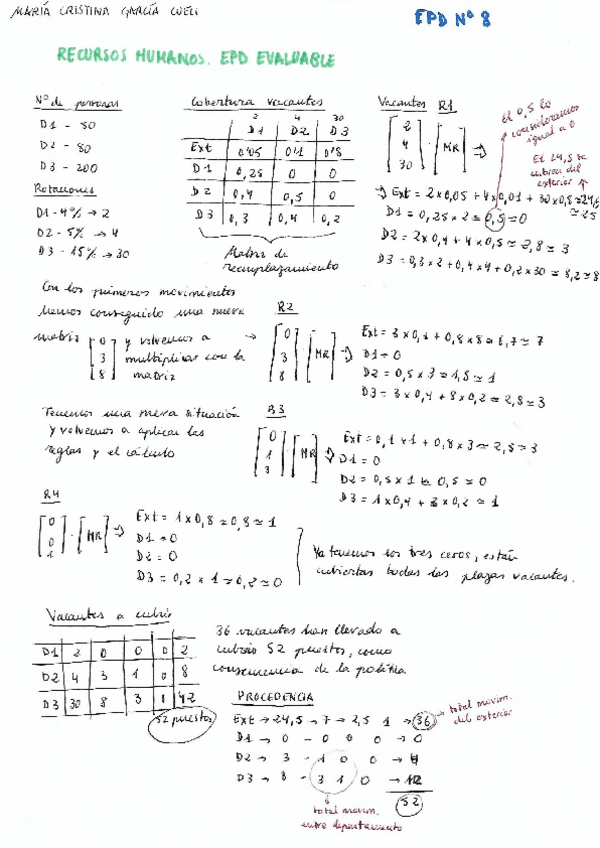 MARÍA CRISTINA GARCÍA
EPD Nº 8
RECURSOS HUMANOS. EPD EVALUABLE
Nº de personas
D1 - 50
D2 - 80
D3 - 200
Rotaciones
D1 - 4% → 2
D2 - 5% → 4
D3 - 15% → 30
Cobertura vacantes
2 4 30
D1 D2 D3
Ext 0'05 0'1 0'8
D1 0,25 0 0
D2 0,4 0,5 0
D3 0,3 0,4 0,2
Matriz de
reemplazamiento
Vacantes R1
2
4 · MR ⇒
30
El 0,5 lo
consideramos
igual a 0
El 24,5 se
cubren del
exterior
⇒ Ext = 2x0,05 + 4x0,01 + 30x0,8 ≃ 24,5
≃ 25
D1 = 0,25 x 2 = 0,5 ≃ 0
D2 = 2x0,4 + 4x0,5 ≃ 2,8 ≃ 3
D3 = 0,3x2 + 0,4x4 + 0,2x30 ≃ 8,2 ≃ 8
Con los primeros movimientos
hemos conseguido una nueva
matriz [0 3 8] y volvemos a
multiplicar con la
matriz
R2
→ [0 3 8] [MR] ⇒
Ext = 3x0,1 + 0,8x8 ≃ 6,7 ≃ 7
D1 = 0
D2 = 0,5x3 ≃ 1,5 ≃ 1
D3 = 3x0,4 + 8x0,2 ≃ 2,8 ≃ 3
Tenemos una nueva situación
y volvemos a aplicar las
reglas y el cálculo
R3
[0 1 3] · [MR] ⇒
Ext = 0,1x1 + 0,8x3 ≃ 2,5 ≃ 3
D1 = 0
D2 = 0,5x1 ≃ 0,5 ≃ 0
D3 = 1x0,4 + 3x0,2 ≃ 1
R4
[0 0 1] · [MR] ⇒
Ext = 1x0,8 ≃ 0,8 ≃ 1
D1 = 0
D2 = 0
D3 = 0,2 x 1 ≃ 0,2 ≃ 0
Ya tenemos los tres ceros, están
cubiertas todas las plazas vacantes.
Vacantes a cubrir
D1 2 0 0 0 2
D2 4 3 1 0 8
D3 30 8 3 1 42
52 puestos
36 vacantes han llevado a
cubrir 52 puestos, como
consecuencia de la política
PROCEDENCIA
Ext → 24,5 → 7 → 2,5 1 → 36
total movim.
del exterior
D1 → 0 - 0 0 0 → 0
D2 → 3 - 1 0 0 → 4
D3 → 8 - 3 1 0 → 12
52
total movim.
entre departamento